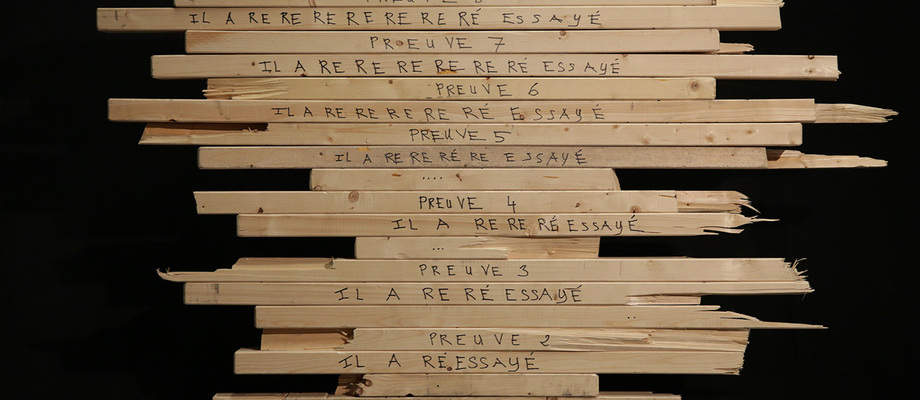 IL A RE RE RE RE RE RE RÉ ESSAYÉ
PREUVE 7
IL A RE RE RE RE RE RÉ ESSAYÉ
PREUVE 6
IL A RE RE RE RE RÉ ESSAYÉ
PREUVE 5
IL A RE RE RÉ RE ESSAYÉ
....
PREUVE 4
IL A RE RE RÉ ESSAYÉ
...
PREUVE 3
IL A RE RÉ ESSAYÉ
PREUVE 2
IL A RÉ ESSAYÉ